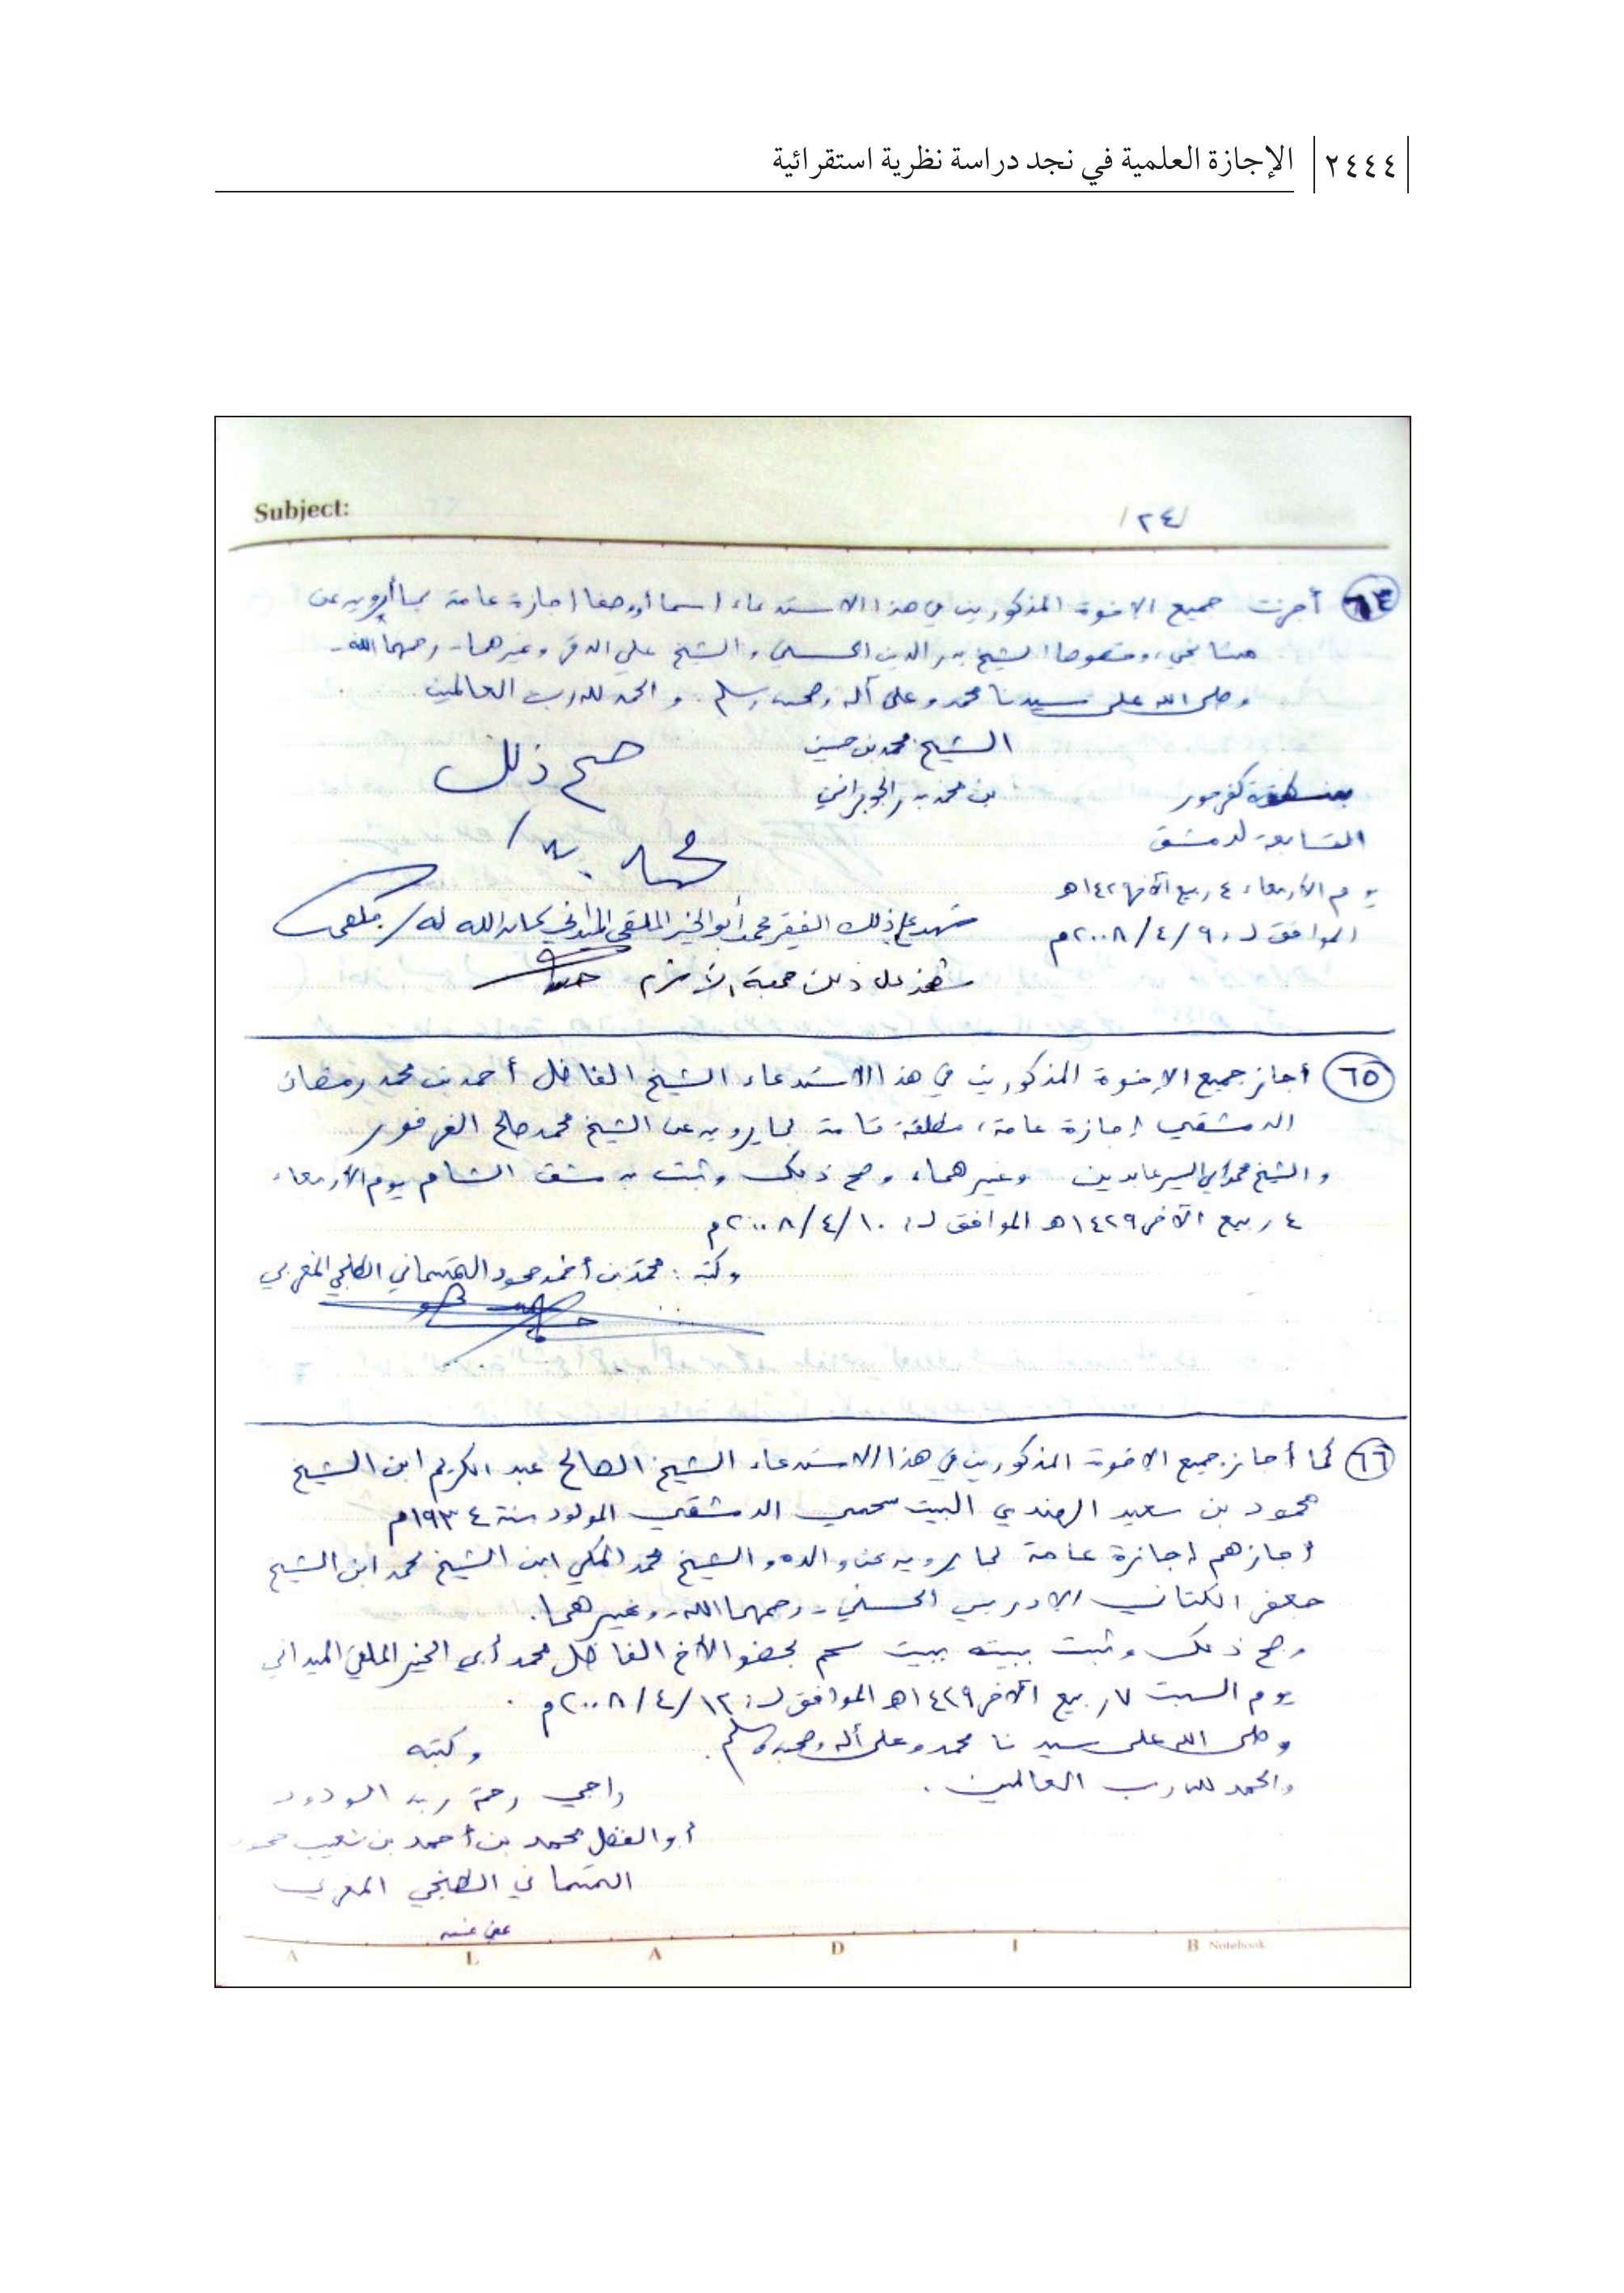 ٢٤٤٤ الإجازة العلمية في نجد دراسة نظرية استقرائية
Subject:
/٢٤/
أجزت جميع الاخوة المذكورين في هذا الاستدعاء اسما أو وصفا اجازة عامة بما أرويه عن
مشائخي، وخصوصا الشيخ بدر الدين الحسني والشيخ علي الدقر وغيرهما - رحمهما الله -
وصلى الله على سيدنا محمد وعلى آله وصحبه وسلم. والحمد لله رب العالمين
الشيخ محمد بن حسين
صح ذلك
بن محمد
التابعة لدمشق
محمد
يوم الأربعاء ٤ ربيع الآخر ١٤٢٩هـ
شهد على ذلك الفقير محمد أبو الخير الملقي الميداني كان الله له /
الموافق لـ: ٩/٤/٢٠٠٨م
شهد على ذلك
٦٥ أجاز جميع الإخوة المذكورين في هذا الاستدعاء الشيخ الفاضل أحمد بن محمد رمضان
الدمشقي إجازة عامة، مطلقة تامة لما يرويه عن الشيخ محمد صالح الفرفور
والشيخ محمد أبي اليسر عابدين وغيرهما، وصح ذلك وثبت بدمشق الشام يوم الأربعاء
٤ ربيع الآخر ١٤٢٩هـ الموافق لـ: ١٠/٤/٢٠٠٨م
وكتبه: محمد بن أحمد محمود التمسماني الطنجي المغربي
٦٦ كما أجاز جميع الاخوة المذكورين في هذا الاستدعاء الشيخ الصالح عبد الكريم ابن الشيخ
محمود بن سعيد الهندي البيت سحمي الدمشقي المولود سنة ١٩٣٤م
أجازهم إجازة عامة لما يرويه عن والده والشيخ محمد المكي ابن الشيخ محمد ابن الشيخ
جعفر الكتاني الادريسي الحسني - رحمهما الله - وغيرهما.
وصح ذلك وثبت ببيته ببيت سحم بحضور الأخ الفاضل محمد أبي الخير الملقي الميداني
يوم السبت ٧ ربيع الآخر ١٤٢٩هـ الموافق لـ: ١٢/٤/٢٠٠٨م.
وصلى الله على سيدنا محمد وعلى آله وصحبه وسلم.
وكتبه
والحمد لله رب العالمين.
راجي رحمة ربه الودود
أبو الفضل محمد بن أحمد بن شعيب محمود
التمسماني الطنجي المغربي
عفي عنه
A L A D I B Notebook